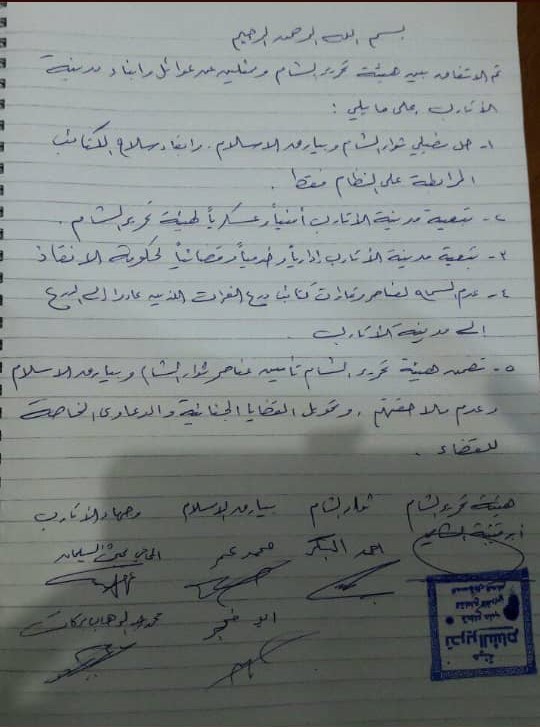 بسم الله الرحمن الرحيم
تم الاتفاق بين هيئة تحرير الشام وممثلين عن عوائل وابناء مدينة
الأتارب على ما يلي :
١- حل فصيلي ثوار الشام وبيارق الاسلام . وابقاء سلاح الكتائب
المرابطة على النظام فقط .
٢- تبعية مدينة الأتارب أمنياً وعسكرياً لهيئة تحرير الشام .
٣- تبعية مدينة الأتارب ادارياً وخدمياً وقضائياً لحكومة الانقاذ
٤- عدم السماح لعناصر وقيادات كتائب درع الفرات الذين غادروا الى الدرع
الى مدينة الأتارب .
٥- تضمن هيئة تحرير الشام تأمين عناصر ثوار الشام وبيارق الاسلام
وعدم ملاحقتهم . وتحويل القضايا الجنائية والدعاوى الخاصة
للقضاء .
هيئة تحرير الشام ثوار الشام بيارق الاسلام وجهاء الأتارب
أحمد البكر محمد عمر المحامي السليمان
ابو خنجر محمد عبد الوهاب بركات
هيئة
تحرير الشام